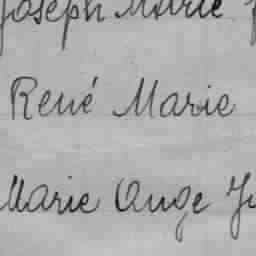 Joseph Marie
René Marie
Marie Ange